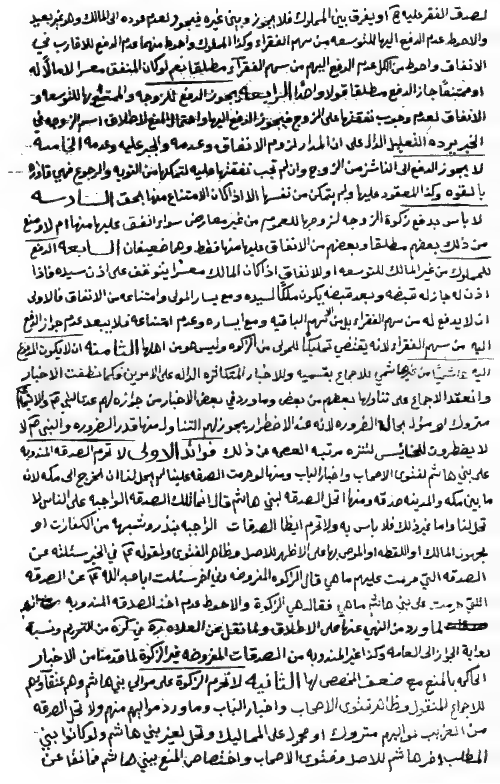 لصدق الفقر عليه ثم او يفرق بين المملوك فلا يجوز وبين غيره فيجوز لعدم عوده الى المالك وهو غير بعيد
والاحوط عدم الدفع اليها للتوسعه من سهم الفقراء وكذا المملوك واحوط منهما عدم الدفع للاقارب في
الانفاق واحوط من الكل عدم الدفع اليهم من سهم الفقراء مطلقا نعم لو كان المنفق معسرا لا مال له
او ممتنعا جاز الدفع مطلقا قولا واحدا الرابعة يجوز الدفع للزوجه والمتمتع بها للتوسعه و
الانفاق لعدم وجوب نفقتها على الزوج فيجوز الدفع اليها واحتمال المنع لاطلاق اسم الزوجه في
الخبر يرده التعليل الدال على ان المدار لزوم الانفاق وعدمه والجبر عليه وعدمه الخامسة
لا يجوز الدفع الى الناشز من الزوج وان لم تجب نفقتها عليه لتمكنها من التوبه والرجوع فهي قادرة
بالقوه وكذا المعقود عليها ولم يتمكن من نفسها الا اذا كان الامتناع منها بحق السادسة
لا باس بدفع زكوة الزوجه لزوجها للعموم من غير معارض سواء انفق عليها منها ام لا ومنع
من ذلك بعضهم مطلقا وبعضهم من الانفاق عليها منها فقط وهما ضعيفان السابعة الدفع
للمملوك من غير المالك للتوسعه او للانفاق اذا كان المالك معسرا يتوقف على اذن سيده فاذا
اذن له جاز له قبضه وبعد قبضه يكون ملكا لسيده ومع يسار المولى وامتناعه من الانفاق فالاولى
ان لا يدفع له من سهم الفقراء بل من السهم الباقيه ومع ايساره وعدم امتناعه فلا يبعد عدم جواز الدفع
اليه من سهم الفقراء لانه يقتضي تمليكا للمولى من الزكوة وليس هو من اهلها الثامنة ان لا يكون المدفوع
اليه هاشميا من غير هاشمي للاجماع بقسميه وللاخبار المتكاثره الداله على الامرين وكلما نطقت الاخبار
وانعقد الاجماع على تناولها لبعضهم من بعض وما ورد في بعض الاخبار من جوازه لهم عدا النبي ص والامام
متروك او مؤول بحالة الضروره لانه عند الاضطرار يجوز لهم التناول منها قدر الضروره والنبي ص لا
لا يضطرون للخبائس لتنزه مرتبه العصمه عن ذلك فوائد الاولى لا تحرم الصدقه المندوبه
على بني هاشم لفتوى الاصحاب واخبار الباب ومنها لو حرمت الصدقة علينا لم يحل لنا ان نخرج الى مكه لان
ما بين مكه والمدينه صدقه ومنها اتحل الصدقه لبني هاشم قال انما تلك الصدقه الواجبه على الناس لا
تحل لنا واما غير ذلك فلا باس به ولا تحرم ايضا الصدقات الواجبه بنذر وشبهه من الكفارات او
بمجهول المالك او اللقطه او الموصى بها على الاظهر للاصل وظاهر الفتوى ولقوله ع في الخبر سئلته عن
الصدقه التي حرمت عليهم ما هي قال الزكوة المفروضه وفي اخر سئلت ابا عبد الله ع عن الصدقه
اللتي حرمت على بني هاشم ما هي فقال هي الزكوة والاحوط عدم اخذ الصدقه المندوبه
لما ورد من النهي عنها على الاطلاق ولما نقل عن العلامه ره في كره من التحريم ونسبه
رواية الجواز الى العامه وكذا غير المندوبه من الصدقات المفروضه غير الزكوة لما قدمنا من الاخبار
الحاكمه بالمنع مع ضعف المخصص لها الثانية لا تحرم الزكوة على موالي بني هاشم وهم عتقاؤهم
للاجماع المنقول وظاهر فتوى الاصحاب واخبار الباب وما ورد مواليهم منهم ولا تحل الصدقه
من الغريب لمواليهم متروك او محمول على المماليك وتحل لغير بني هاشم ولو كانوا بني
المطلب اخو هاشم للاصل وفتوى الاصحاب واختصاص المنع ببني هاشم فافتقا عن